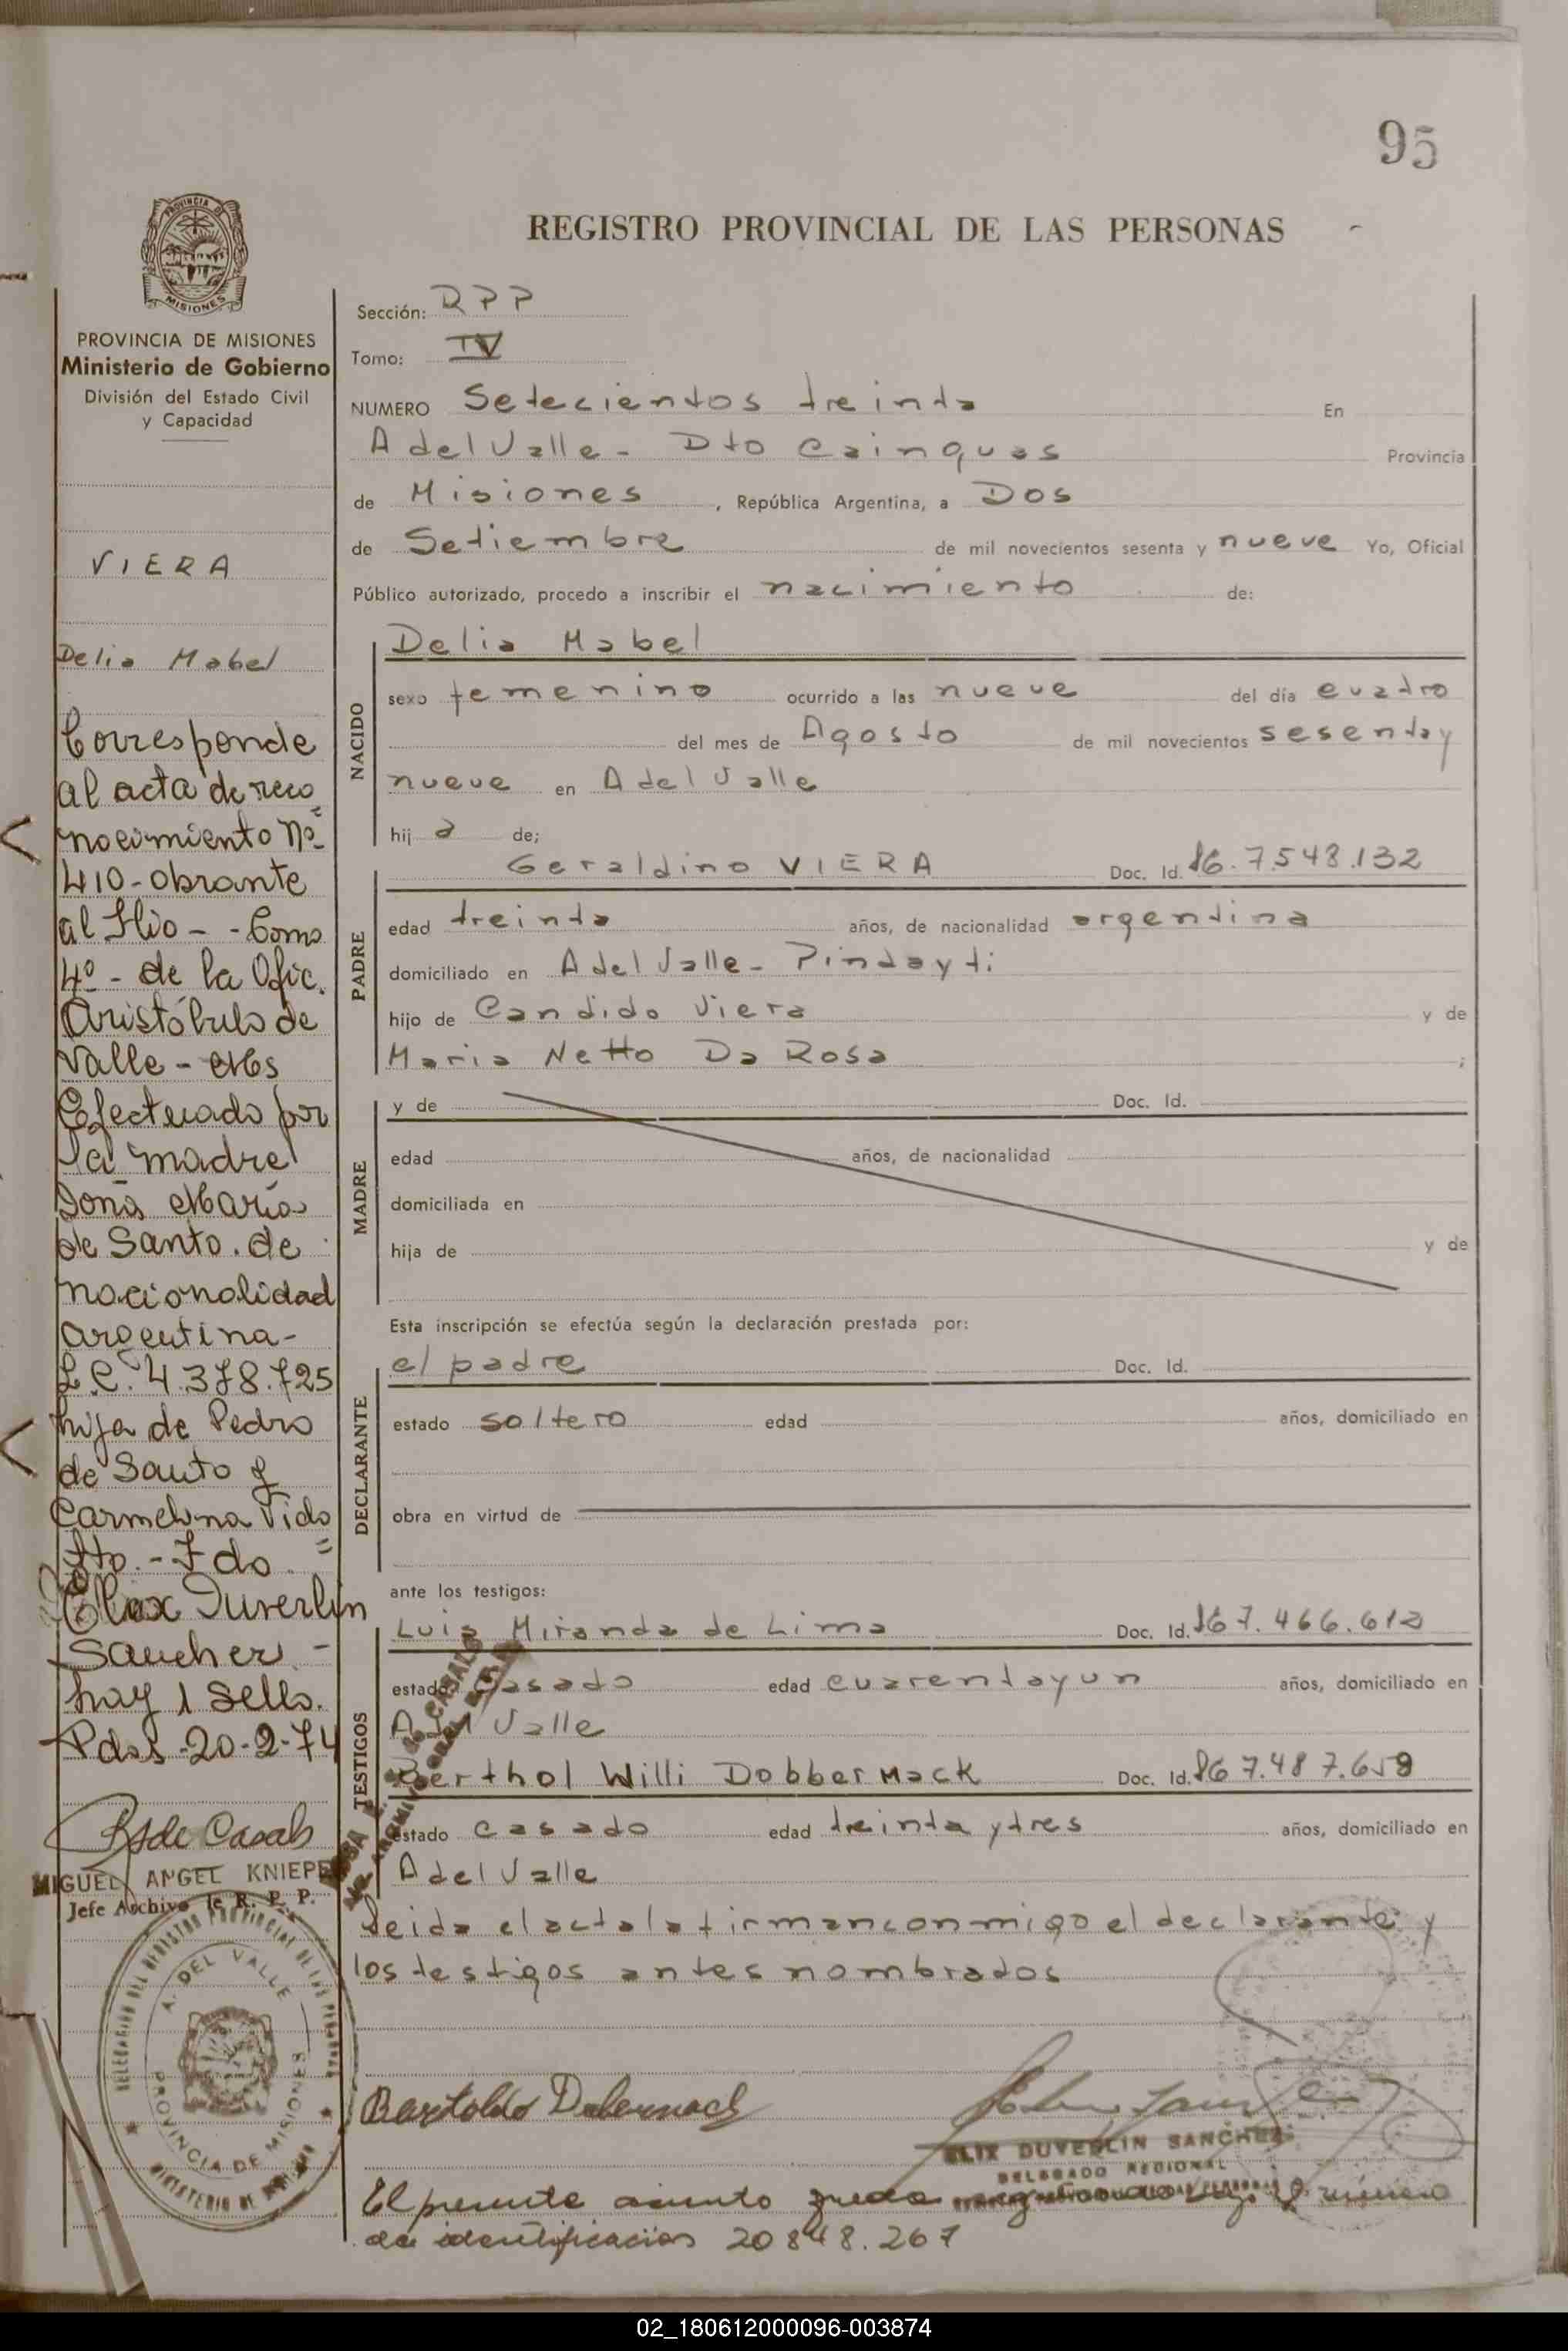 95
REGISTRO PROVINCIAL DE LAS PERSONAS
PROVINCIA DE MISIONES
PROVINCIA DE MISIONES
Ministerio de Gobierno
División del Estado Civil
y Capacidad
VIERA
Delia Mabel
Corresponde
al acta de reco
nocimiento Nº
410-obrante
al flio - - Tomo
4º - de la Ofic.
Aristóbulo de
Valle - Mes
Efectuado por
la madre
Doña María
de Santo. de
nacionalidad
argentina-
L.C. 4.378.725
hija de Pedro
de Santo y
Carmelina Vido
tto. - Fdo.
Elix Duverlin
Sancher. -
hay 1 Sello.
Pdas -20-2-74
MIGUEL ANGEL KNIEPE
Jefe Archivo de R. P. P.
DELEGACION DEL REGISTRO PROVINCIAL DE LAS PERSONAS
A. DEL VALLE
PROVINCIA DE MISIONES
MINISTERIO DE
Sección: RPP
Tomo: IV
NUMERO Setecientos treinta En
A del Valle - Dto Cainguas Provincia
de Misiones, República Argentina, a Dos
de Setiembre de mil novecientos sesenta y nueve Yo, Oficial
Público autorizado, procedo a inscribir el nacimiento de:
NACIDO
Delia Mabel
sexo femenino ocurrido a las nueve del día cuatro
del mes de Agosto de mil novecientos sesenta y
nueve en A del Valle
hij a de;
PADRE
Geraldino VIERA Doc. Id. 7.548.132
edad treinta años, de nacionalidad argentina
domiciliado en A del Valle - Pindayti
hijo de Candido Viera y de
Maria Netto Da Rosa ;
MADRE
y de Doc. Id.
edad años, de nacionalidad
domiciliada en
hija de y de
Esta inscripción se efectúa según la declaración prestada por:
DECLARANTE
el padre Doc. Id.
estado soltero edad años, domiciliado en
obra en virtud de
ante los testigos:
TESTIGOS
Luis Miranda de Lima Doc. Id. 7.466.612
estado casado edad cuarenta y un años, domiciliado en
A del Valle
Berthol Willi Dobbermack Doc. Id. 7.487.659
estado casado edad treinta y tres años, domiciliado en
A del Valle
Leida el acta la firman conmigo el declarante y
los testigos antes nombrados
Bartoldo Dabernack
ELIX DUVERLIN SANCHEZ
DELEGADO REGIONAL
El presente asiento queda
de identificacion 20848.267
02_180612000096-003874